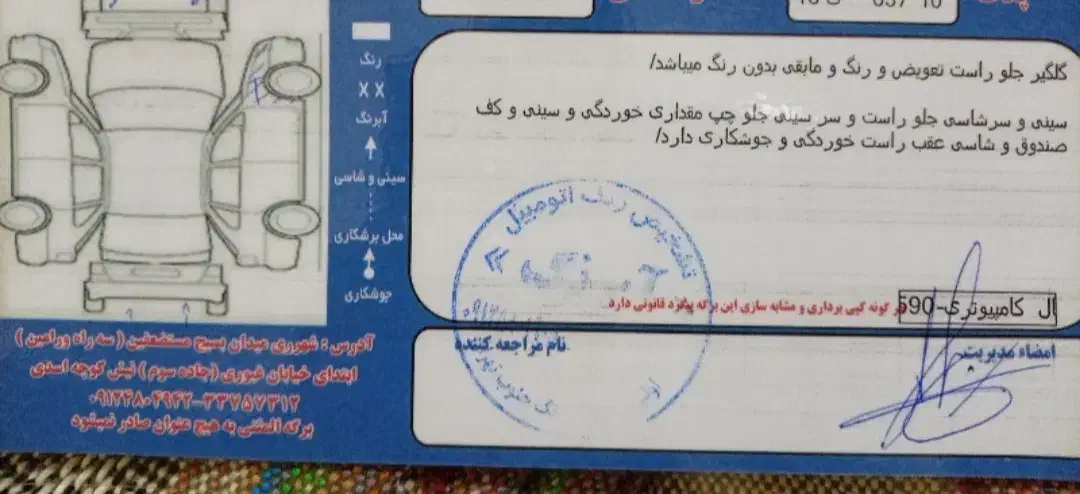 گلگیر جلو راست تعویض و رنگ و مابقی بدون رنگ میباشد/
سینی و سرشاسی جلو راست و سر سینی جلو چپ مقداری خوردگی و سینی و کف
صندوق و شاسی عقب راست خوردگی و جوشکاری دارد/
رنگ
X X
آبرنگ
سینی و شاسی
محل برشکاری
جوشکاری
تشخیص رنگ اتومبیل
هر گونه کپی برداری و مشابه سازی این برگه پیگرد قانونی دارد
ال کامپیوتری-590
نام مراجعه کننده
امضاء مدیریت
آدرس : شهرری میدان بسیج مستضعفین ( سه راه ورامین )
ابتدای خیابان غیوری ( جاده سوم ) نبش کوچه اسدی
۰۹۱۲۴۸۰۴۹۴۲-۳۳۷۵۷۳۱۲
برگه المثنی به هیچ عنوان صادر نمیشود